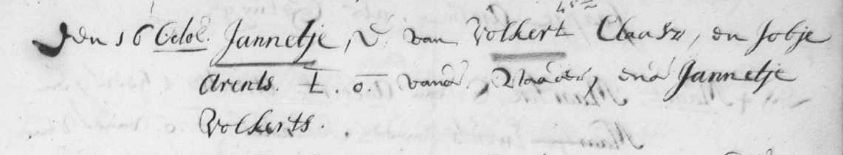 Den 16 Octob. Jannetje, D. van Volkert Claasz, en Jobje
Arents. t. o. vand Vaader, end Jannetje
Volkerts.